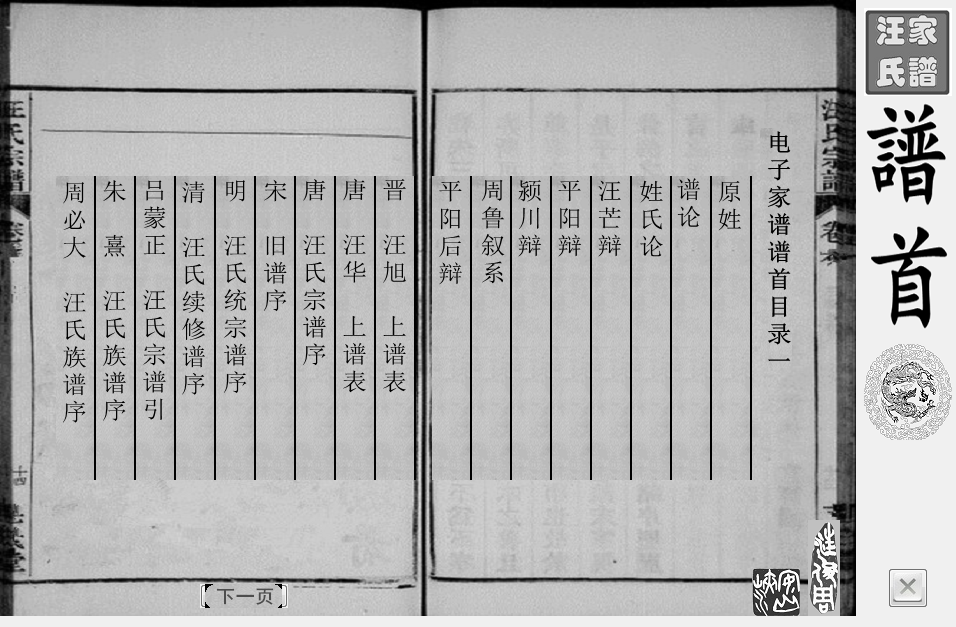 电子家谱谱首目录一
原姓
谱论
姓氏论
汪芒辩
平阳辩
颍川辩
周鲁叙系
平阳后辩
晋 汪旭 上谱表
唐 汪华 上谱表
唐 汪氏宗谱序
宋 旧谱序
明 汪氏统宗谱序
清 汪氏续修谱序
吕蒙正 汪氏宗谱引
朱 熹 汪氏族谱序
周必大 汪氏族谱序
汪氏宗譜
十四
下一页
汪氏
家譜
譜首